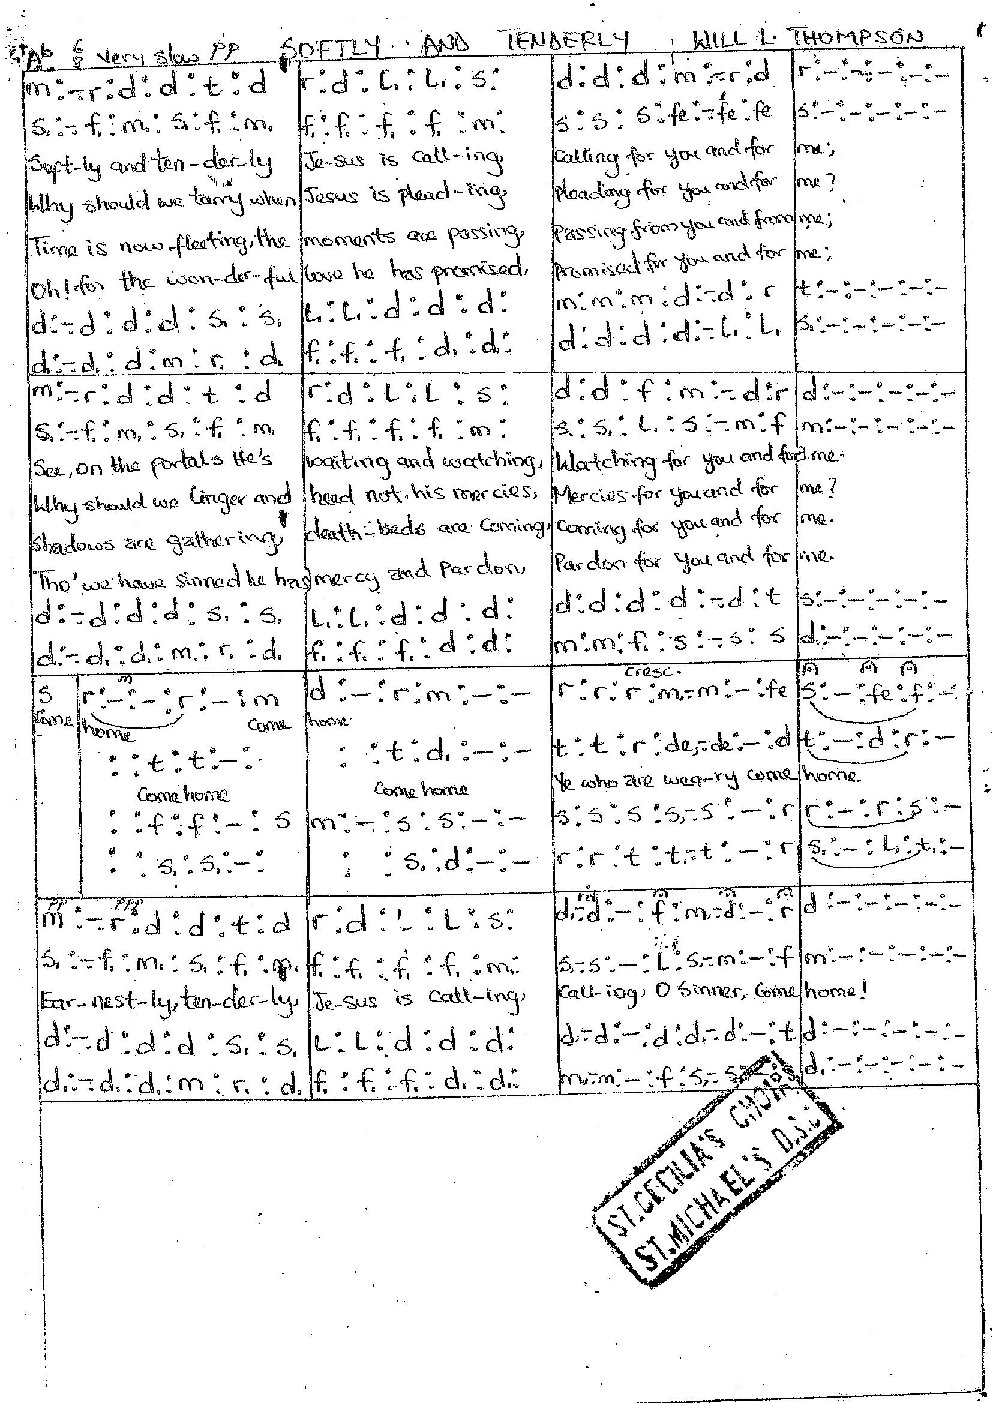 Ab 6/8 Very slow PP SOFTLY AND TENDERLY WILL L. THOMPSON
m :-.r :d :d :t :d | r :d :l, :l, :s: | d :d :d :m :-.r :d | r :- :- :- :- :-
s, :-.f, :m, :s, :f, :m, | f, :f, :f, :f, :m: | s :s :s :fe :-.fe :fe | s :- :- :- :- :-
Sopt-ly and ten-der-ly | Je-sus is call-ing, | Calling for you and for | me;
Why should we tarry when | Jesus is plead-ing, | Pleading for you and for | me?
Time is now fleeting, the | moments are passing, | Passing from you and from | me;
Oh! for the won-der-ful | love he has promised, | Promised for you and for | me;
d :-.d :d :d :s, :s, | l, :l, :d :d :d: | m :m :m :d :-.d :r | t :- :- :- :- :-
d :-.d, :d :m :r, :d, | f, :f, :f, :d, :d: | d :d :d :d :-.l, :l, | s, :- :- :- :- :-
m :-.r :d :d :t :d | r :d :l :l :s: | d :d :f :m :-.d :r | d :- :- :- :- :-
s, :-.f, :m, :s, :f, :m, | f, :f, :f, :f, :m: | s, :s, :l, :s :-.m :f | m :- :- :- :- :-
See, on the portals He's | waiting and watching, | Watching for you and for | me.
Why should we linger and | head not his mercies, | Mercies for you and for | me?
Shadows are gathering, | death-beds are coming, | Coming for you and for | me.
Tho' we have sinned he has | mercy and Pardon, | Pardon for you and for | me.
d :-.d :d :d :s, :s, | l, :l, :d :d :d: | d :d :d :d :-.d :t | s :- :- :- :- :-
d :-.d, :d, :m, :r, :d, | f, :f, :f, :d :d: | m :m :f, :s :-.s :s | d :- :- :- :- :-
Cresc.
s | r :- :- :r :- :m | d :- :r :m :- :- | r :r :r :m :-.m :- :fe | s :- :fe :f :-
Come | home Come | home
: :t :t :- : | : :t :d, :- :- | t :t :r :de, :-.de :- :d | t :- :d :r :-
Come home | Come home | Ye who are wea-ry come | home.
: :f :f :- :s | m :- :s :s :- :- | s :s :s :s, :-.s :- :r | r :- :r :s :-
: :s, :s, :- : | : :s, :d :- :- | r :r :t :t, :-.t :- :r | s, :- :l, :t, :-
PP PPP
m :-.r :d :d :t :d | r :d :l :l :s: | d, :d :- :f :m :-.d :- :r | d :- :- :- :- :-
s, :-.f, :m, :s, :f, :m, | f, :f, :f, :f, :m,: | s, :s :- :l :s, :-.m :- :f | m :- :- :- :- :-
Ear-nest-ly, ten-der-ly, | Je-sus is call-ing, | Call-ing, O Sinner, Come | home!
d :-.d :d :d :s, :s, | l :l :d :d :d: | d, :d :- :d :d, :-.d :- :t | d :- :- :- :- :-
d, :-.d, :d, :m, :r, :d, | f, :f, :f, :d, :d,: | m, :m :- :f :s, :-.s | d, :- :- :- :- :-
ST. CECILIA'S CHOIR
ST. MICHAEL'S D.S.C